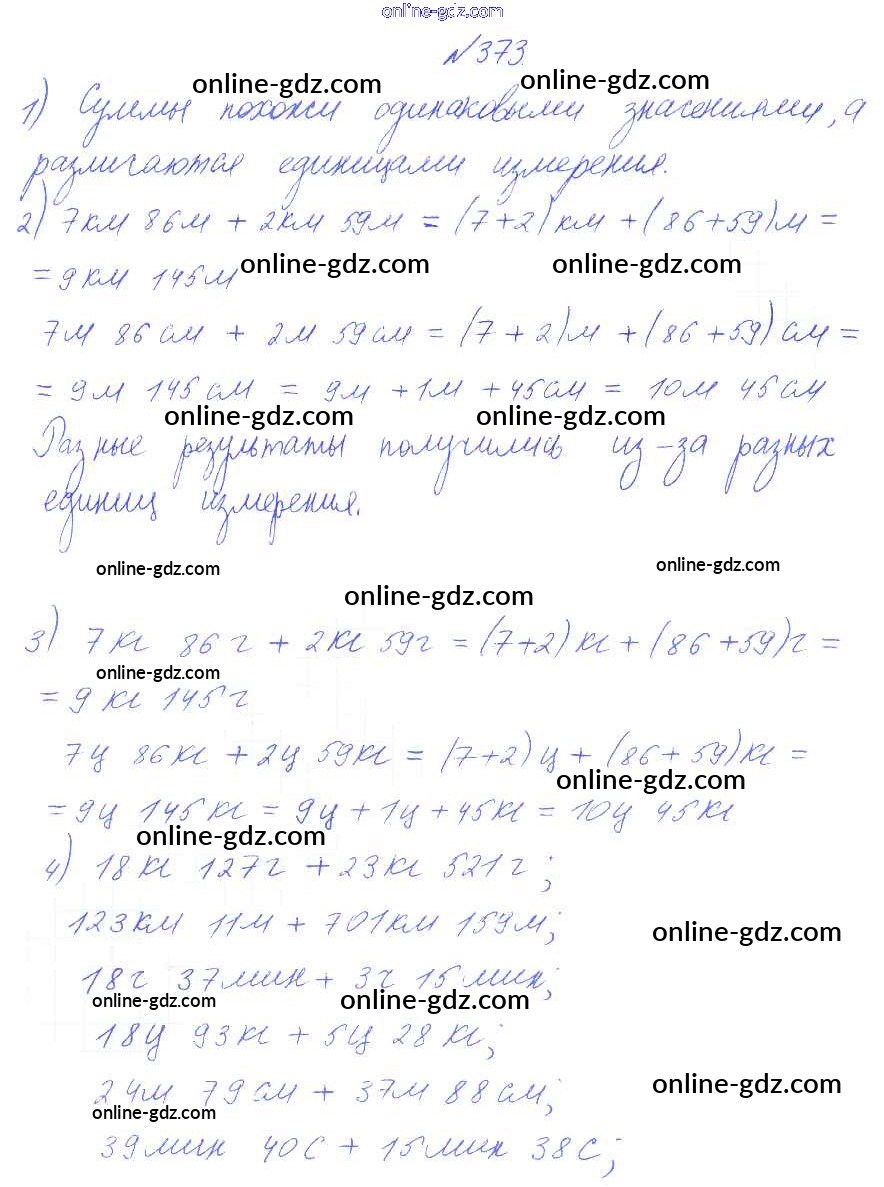 online-gdz.com
№373.
online-gdz.com online-gdz.com
1) Суммы похожи одинаковыми значениями, а
различаются единицами измерения.
2) 7км 86м + 2км 59м = (7+2)км + (86+59)м =
= 9км 145м
online-gdz.com online-gdz.com
7м 86см + 2м 59см = (7+2)м + (86+59)см =
= 9м 145см = 9м + 1м + 45см = 10м 45см
online-gdz.com online-gdz.com
Разные результаты получились из-за разных
единиц измерения.
online-gdz.com online-gdz.com
online-gdz.com
3) 7кг 86г + 2кг 59г = (7+2)кг + (86+59)г =
online-gdz.com
= 9кг 145г
7ц 86кг + 2ц 59кг = (7+2)ц + (86+59)кг =
online-gdz.com
= 9ц 145кг = 9ц + 1ц + 45кг = 10ц 45кг
online-gdz.com
4) 18кг 127г + 23кг 521г;
123км 11м + 701км 159м;
online-gdz.com
18г 37мин + 3ч 15мин;
online-gdz.com online-gdz.com
18ц 93кг + 5ц 28кг;
24м 79см + 37м 88см;
online-gdz.com
online-gdz.com
39мин 40с + 15мин 38с;